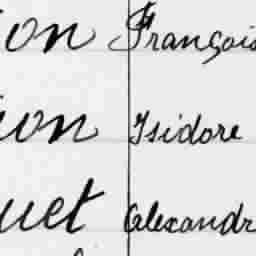 ion François
ion Isidore
uet Alexandr